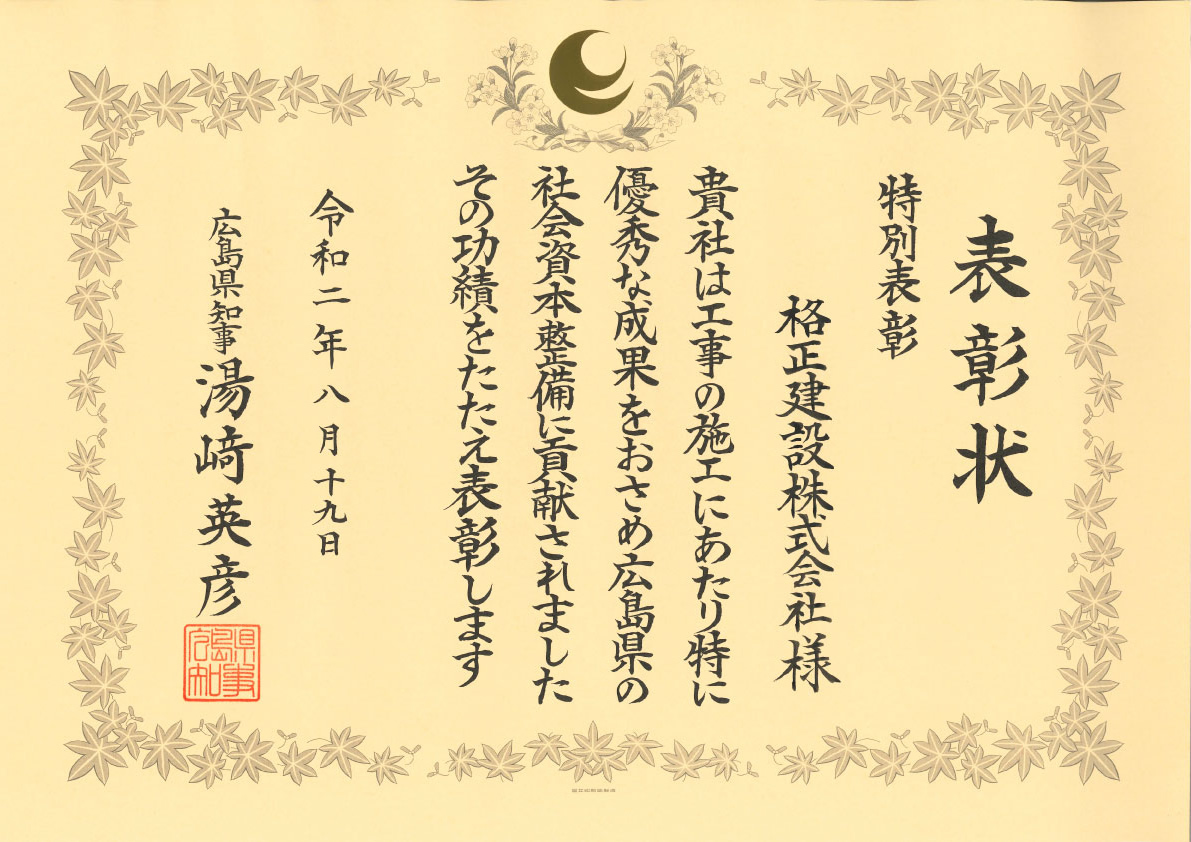 表彰状
特別表彰
格正建設株式会社様
貴社は工事の施工にあたり特に
優秀な成果をおさめ広島県の
社会資本整備に貢献されました
その功績をたたえ表彰します
令和二年八月十九日
広島県知事 湯﨑英彦